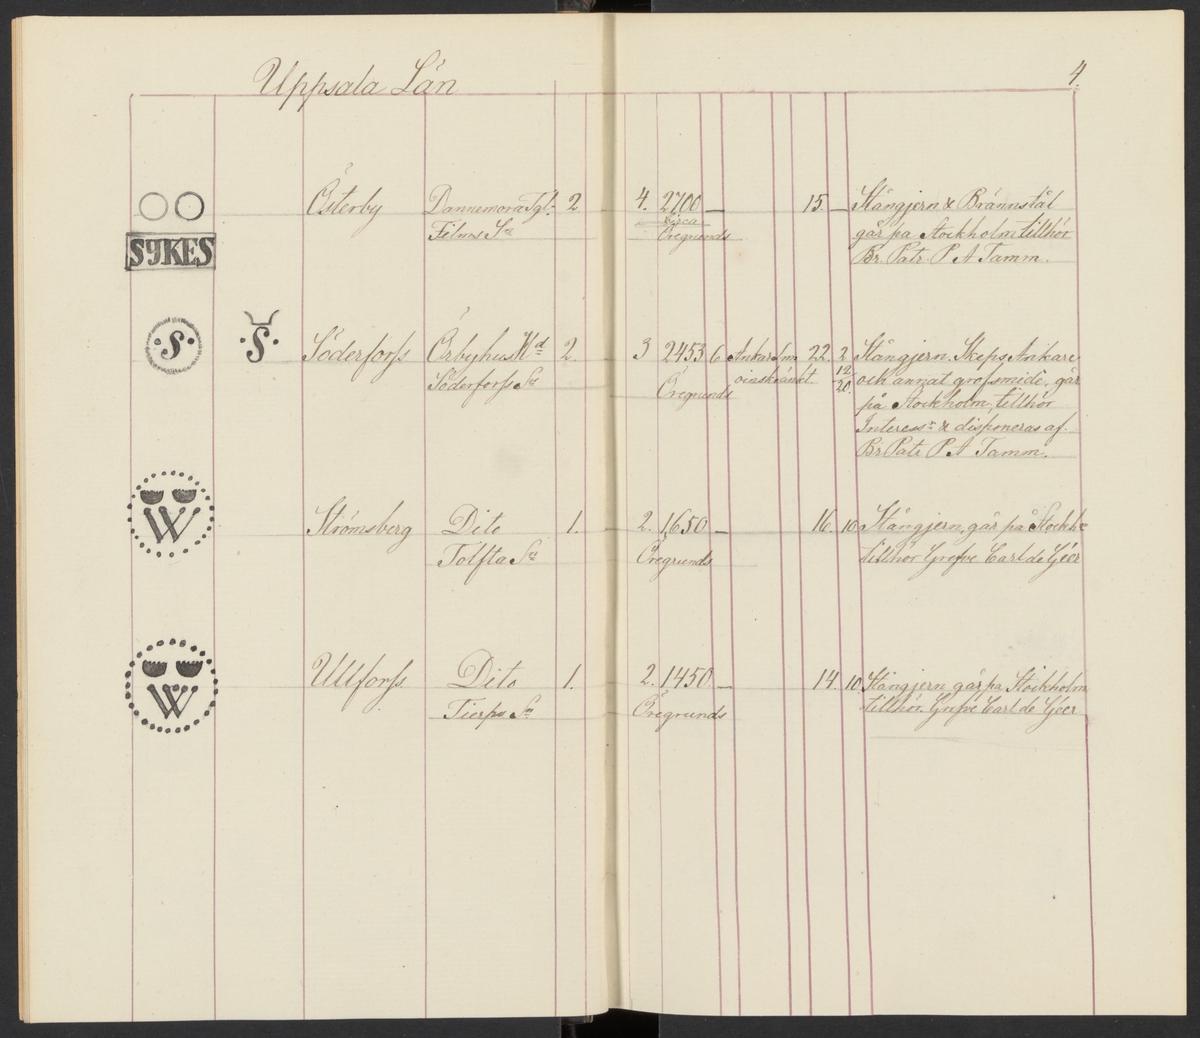 Uppsala Län
4.
Österby Dannemora Tgl. 2 4. 2700 — 15. — Stångjern & Brännstål
Films Sn Circa Öregrunds går på Stockholm tillhör
SYKES Br. Patr. P A Tamm.
S S Söderforss Örbyhus Hd 2. 3 2453 6 Ankarsm 22. 2 Stångjern. Skeps Ankare
Söderforss Sn Öregrunds oinskränkt. 12 20. och annat grofsmide, går
på Stockholm, tillhör
Interess:r & disponeras af.
Br. Patr. P A Tamm.
W Strömsberg Dito 1. 2. 1650 — 16. 10 Stångjern, går på Stockh:
Tolfta Sn Öregrunds tillhör Grefve Carl de Geer
W Ullforss. Dito 1. 2. 1450 — 14 10 Stångjern går på Stockholm
Tierps Sn Öregrunds tillhör. Grefve Carl de Geer